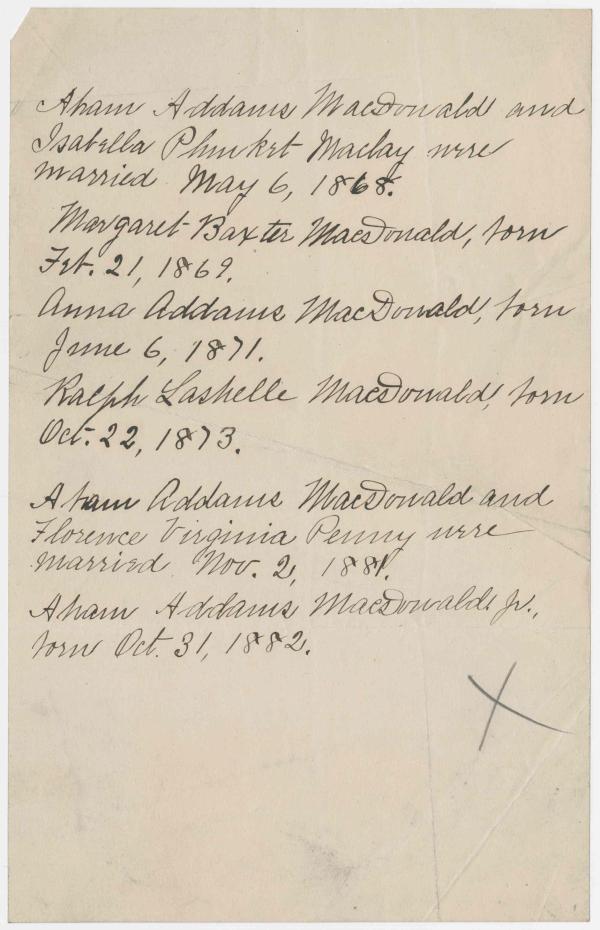 Aham Addams MacDonald and
Isabella Plunket Maclay were
married May 6, 1868.
Margaret Baxter MacDonald, born
Feb. 21, 1869.
Anna Addams MacDonald, born
June 6, 1871.
Ralph Lashelle MacDonald, born
Oct. 22, 1873.
Aham Addams MacDonald and
Florence Virginia Penny were
married Nov. 2, 1881.
Aham Addams MacDonald, Jr.,
born Oct. 31, 1882.